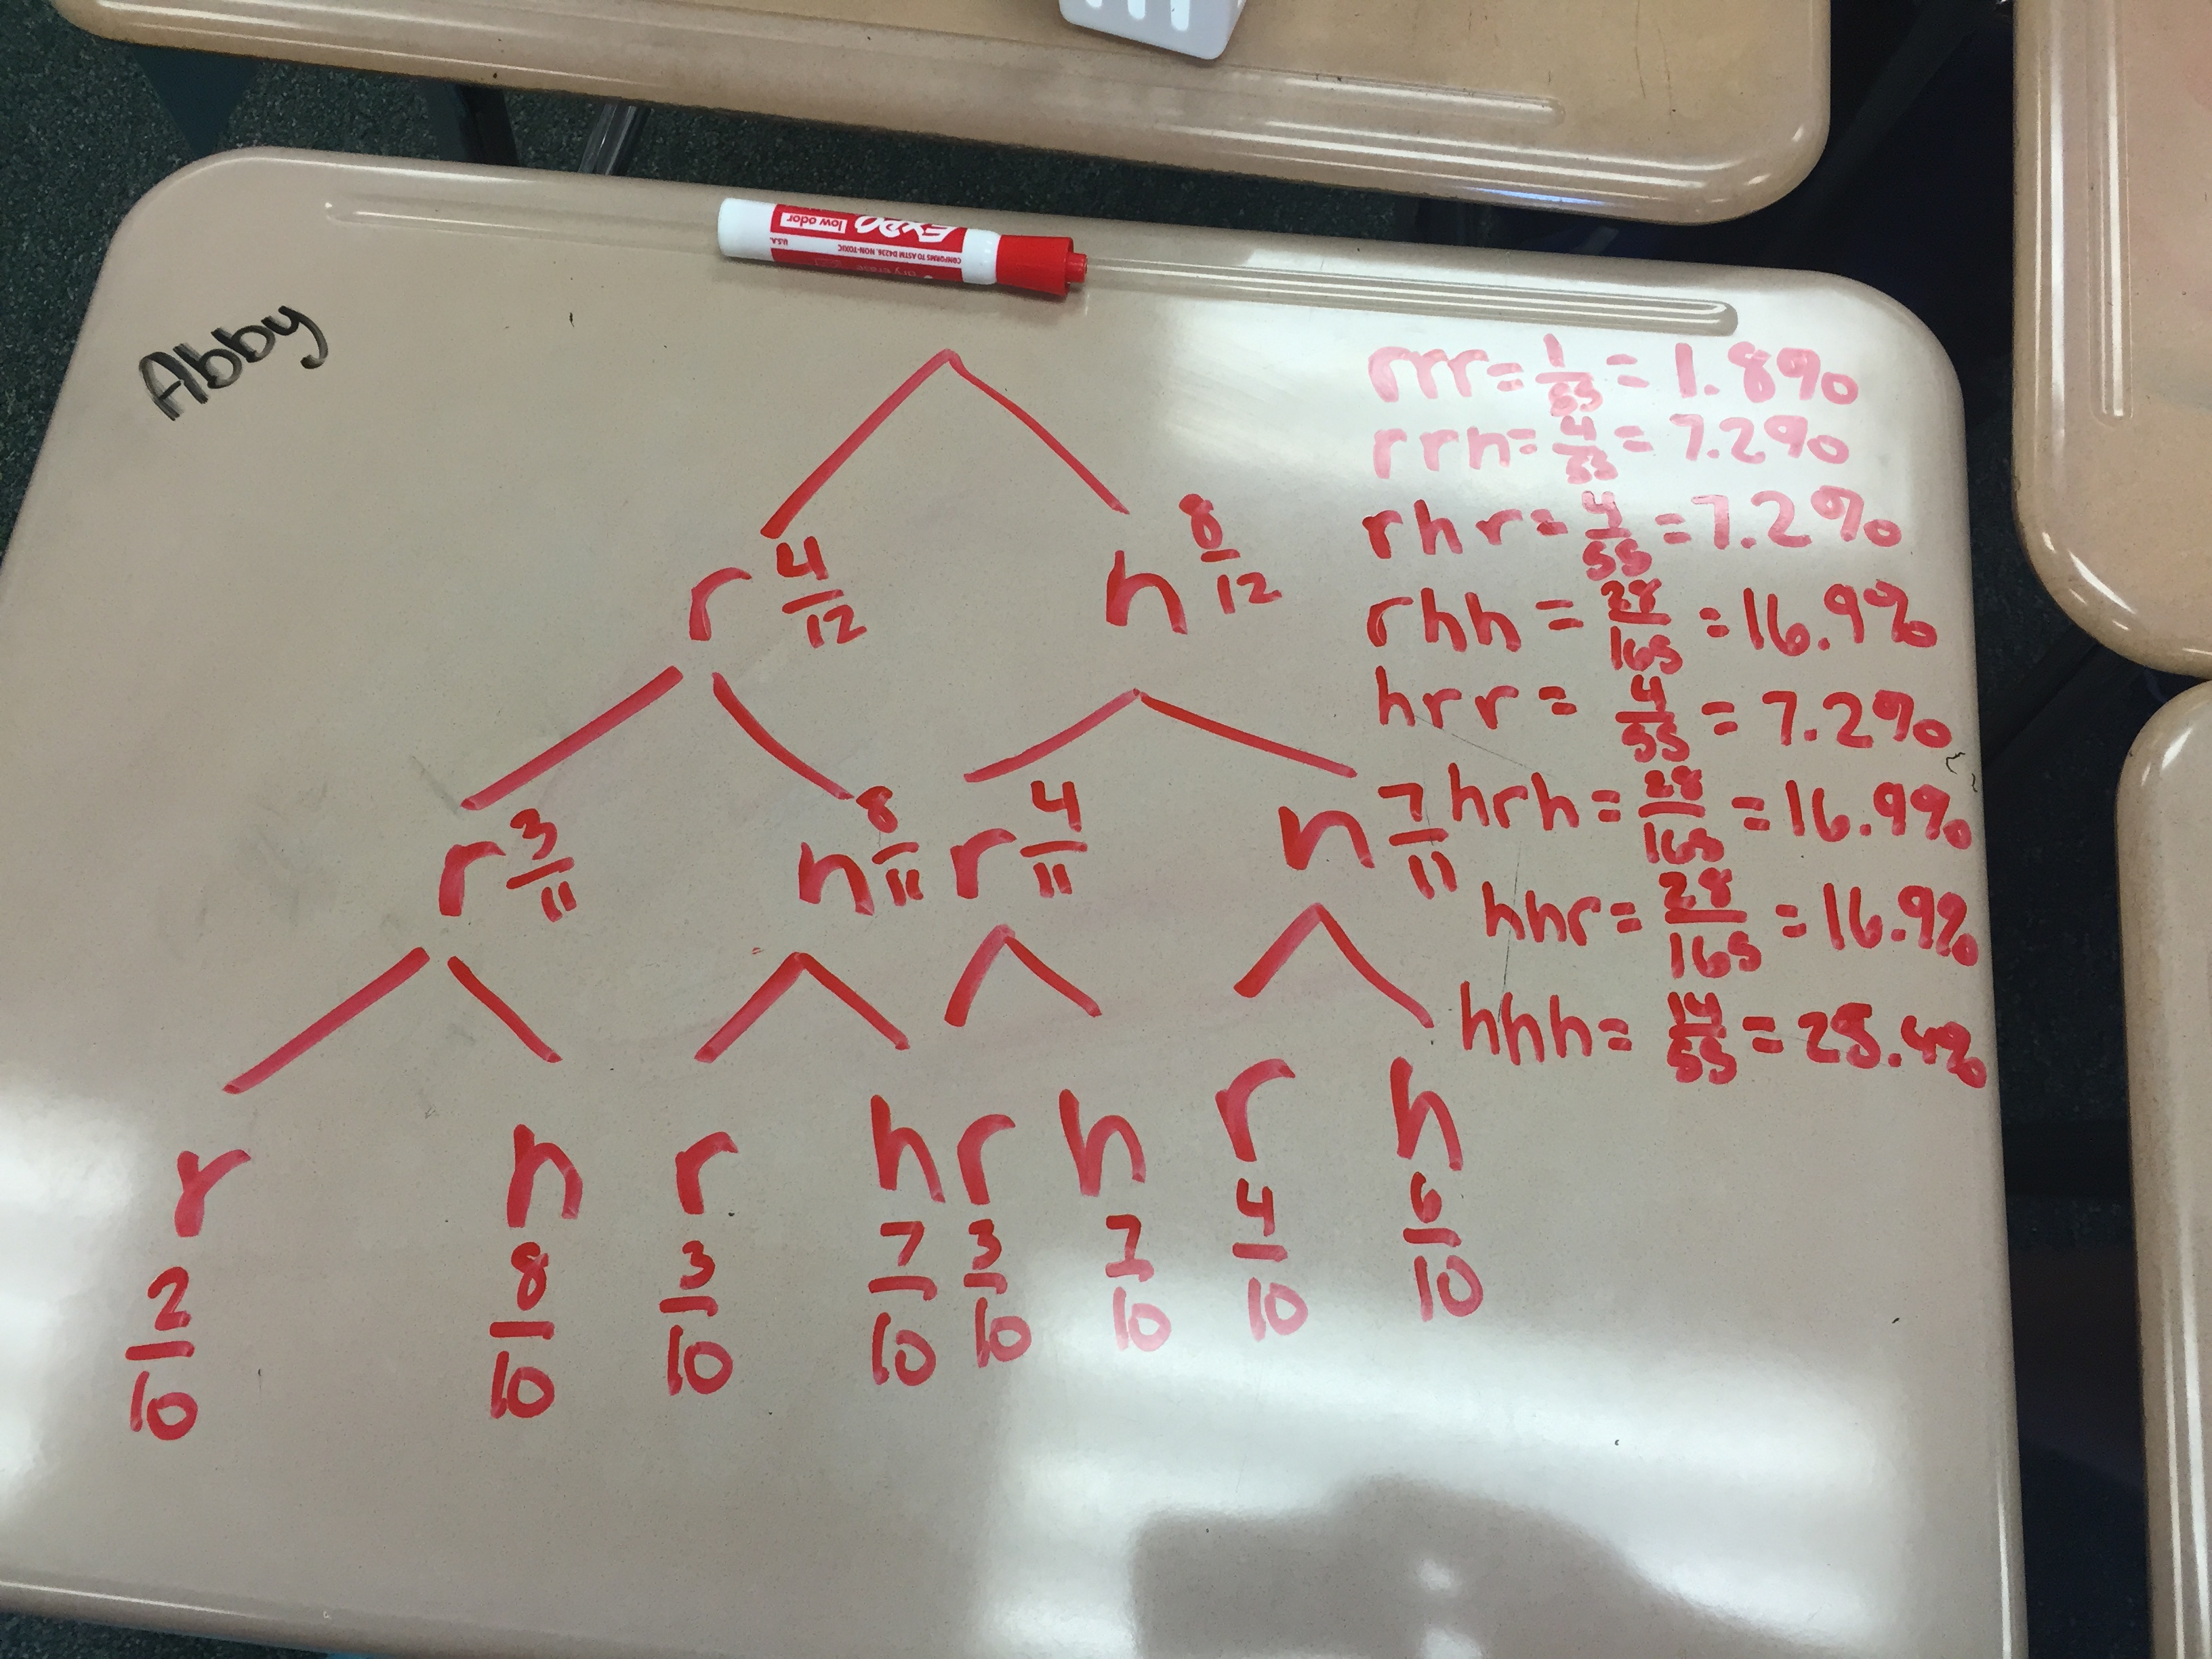 Abby
EXPO low odor
CONFORMS TO ASTM D4236. NON-TOXIC
U.S.A.
dry erase
r 4/12
h 8/12
r 3/11
h 8/11
r 4/11
h 7/11
r 2/10
h 8/10
r 3/10
h 7/10
r 3/10
h 7/10
r 4/10
h 6/10
rrr = 1/55 = 1.8%
rrh = 4/55 = 7.2%
rhr = 4/55 = 7.2%
rhh = 28/165 = 16.9%
hrr = 4/55 = 7.2%
hrh = 28/165 = 16.9%
hhr = 28/165 = 16.9%
hhh = 14/55 = 25.4%